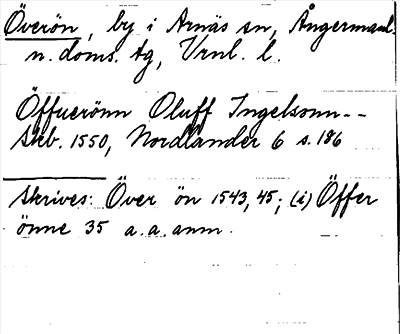 Överön, by i Arnäs sn, Ångermanl.
n. doms. tg, Vrnl. l.
Öffuerönn Oluff Ingelsonn--
Skb. 1550, Nordlander 6 s. 186
Skrives: Över ön 1543, 45; (i) Öffer
önne 35 a. a. anm.